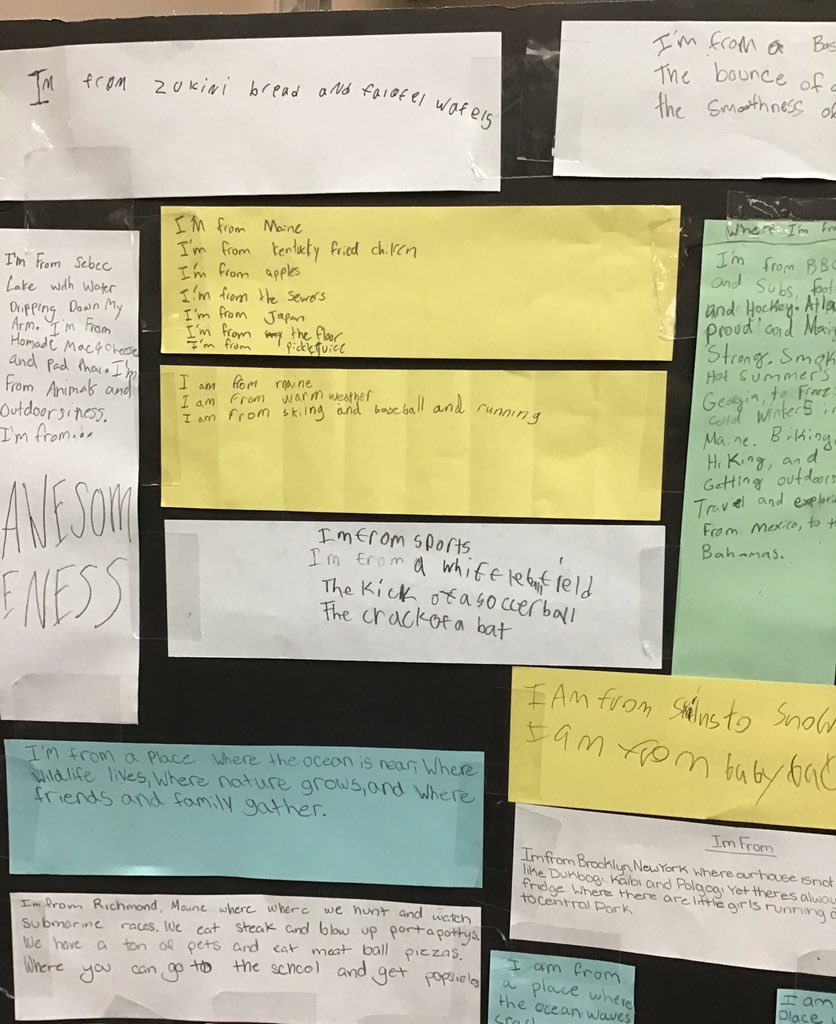 Im from zukini bread and falafel wafels
I'm from a Bas
The bounce of
the smoothness of
I'm From Sebec
Lake with Water
Dripping Down My
Arm. I'm From
Homade Mac & Cheese
and Pad thai. I'm
From Animals and
Outdoorsiness.
I'm from...
AWESOM
ENESS
I'M from Maine
I'm from kentucky fried chiken
I'm from apples
I'm from the sewers
I'm from Japan
I'm from the floor
I'm from picklejuice
I am from maine
I am from warm weather
I am from skiing and baseball and running
Im from sports
Im from a whiffleball field
The kick of a soccer ball
The crack of a bat
Where I'm fro
I'm from BBQ
and Subs, foot
and Hockey. Atla
proud and Maine
Strong. Smok
Hot summers
Georgia, to Freez
cold winters i
Maine. Biking,
Hiking, and
Getting outdoors
Travel and explori
From Mexico, to th
Bahamas.
I AM from to snow
I am from baby bat
I'm from a place where the ocean is near, Where
wildlife lives, Where nature grows, and Where
friends and family gather.
Im From
Im from Brooklyn, New York where our house is not
like Dukbogi, Kalbi and Polgogi Yet theres alway
fridge. Where there are little girls running
to Central Park.
I'm from Richmond, Maine where where we hunt and watch
submarine races. We eat steak and blow up portapottys.
We have a ton of pets and eat meat ball pizzas.
Where you can go to the school and get popsicles
I am from
a place where
the ocean waves
crash
I am
place